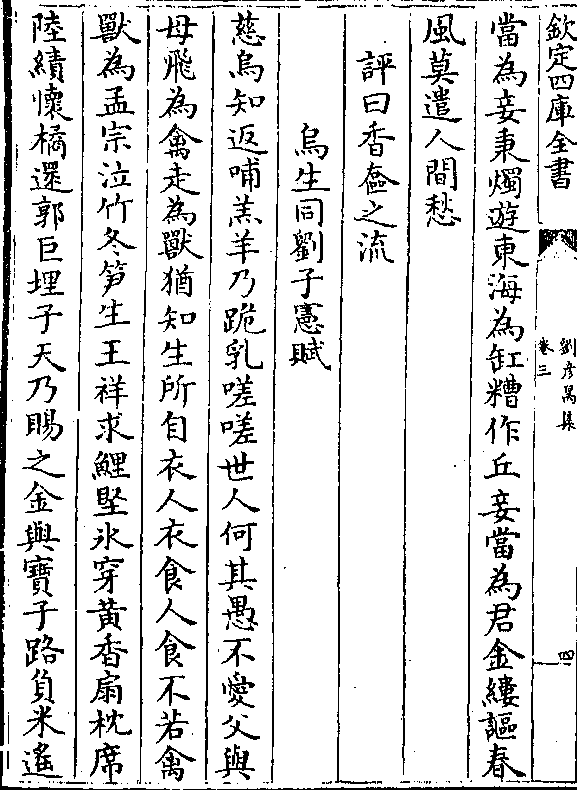 欽定四庫全書
劉彥昺集
卷三
四
當為妾秉燭遊東海為缸糟作丘妾當為君金縷謳春
風莫遣人間愁
評曰香奩之流
烏生同劉子憲賦
慈烏知返哺羔羊乃跪乳嗟嗟世人何其愚不愛父與
母飛為禽走為獸猶知生所自衣人衣食人食不若禽
獸為孟宗泣竹冬笋生王祥求鯉堅氷穿黄香扇枕席
陸績懷橘還郭巨埋子天乃賜之金與寳子路負米遙